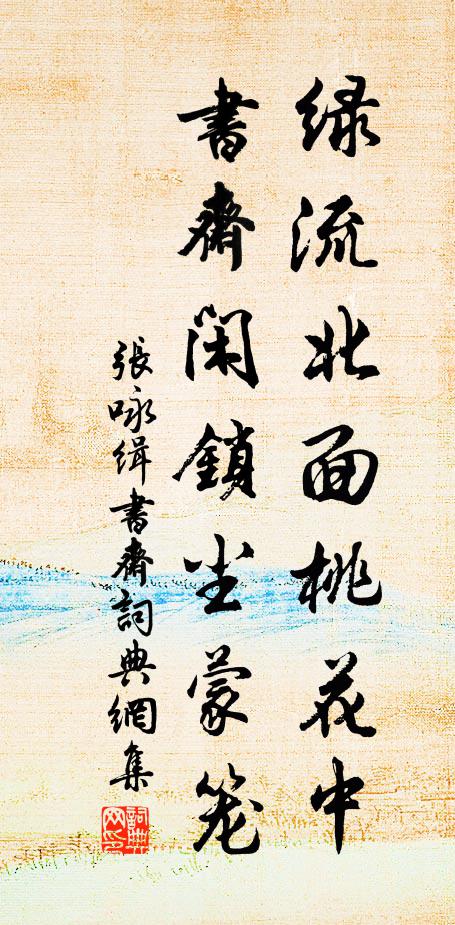 绿流北面桃花中
書齋闲鎖尘蒙笼
張咏缉書齋詞典網集
詞典网印